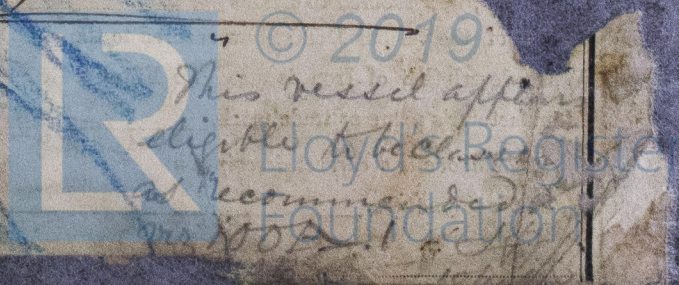 © 2019
Lloyd's Register
Foundation
This vessel appears
eligible to be classed
as recommended
100A1.